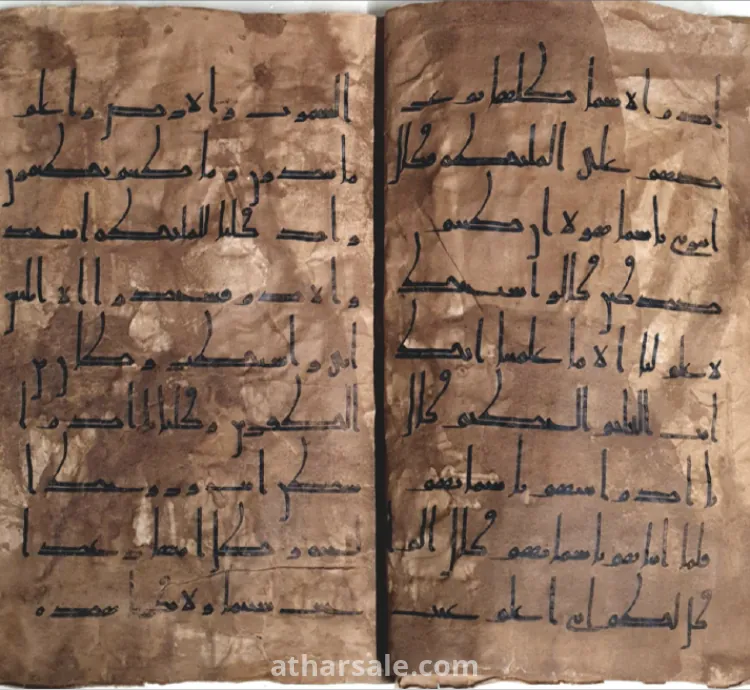 ادم الاسما كلها ثم عر
ضهم على الملئكة فقال
انبوني باسما هولا ان كنتم
صدقين قالوا سبحنك
لا علم لنا الا ما علمتنا انك
انت العليم الحكيم قال
يا ادم انبهم باسمايهم
فلما انباهم باسمايهم قال الم ا
قل لكم اني اعلم غيب
السموت والارض واعلم
ما تبدون وما كنتم تكتمون
واذ قلنا للملئكة اسجد
وا لادم فسجدوا الا ابليس
ابى واستكبر وكان من
الكفرين وقلنا يا ادم ا
سكن انت وزوجك ا
لجنة وكلا منها رغدا
حيث شيتما ولا تقربا هذه
atharsale.com